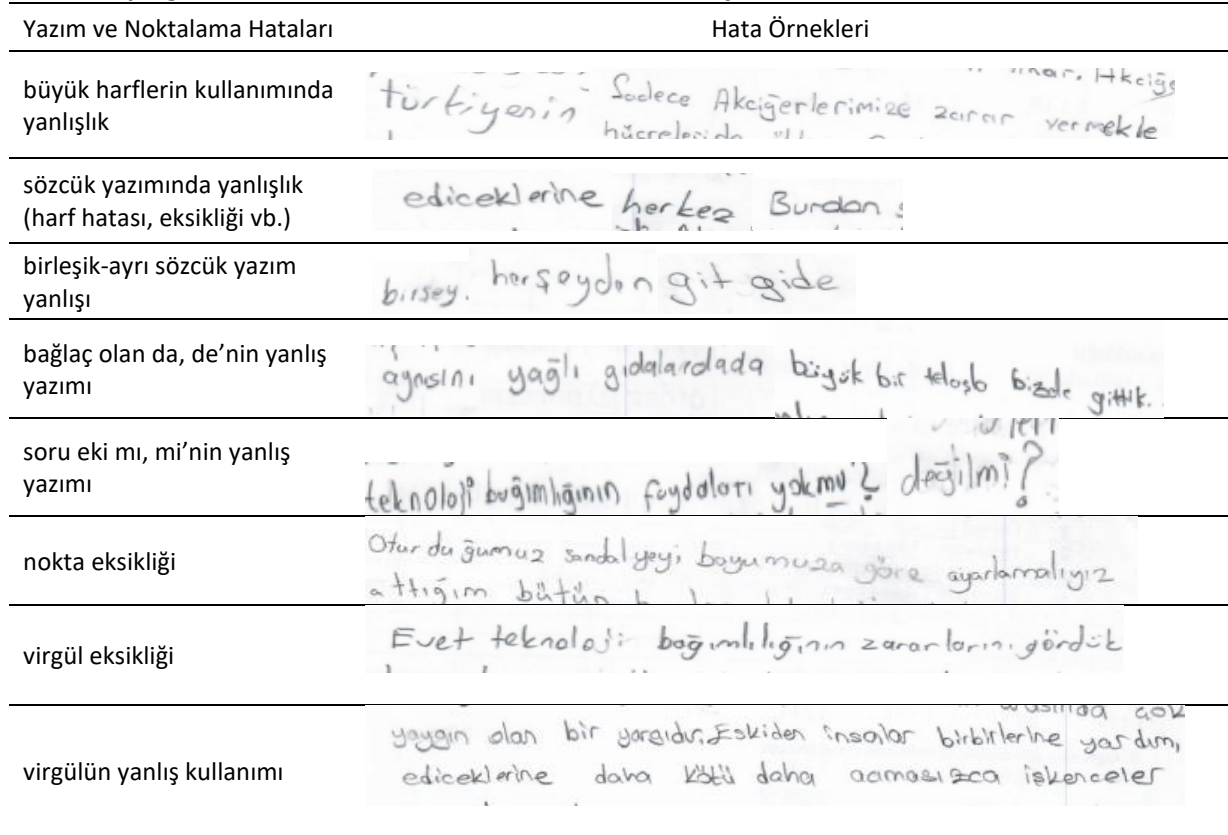 Yazım ve Noktalama Hataları Hata Örnekleri
büyük harflerin kullanımında
yanlışlık
türkiyenin Sadece Akciğerlerimize zarar vermekle
sözcük yazımında yanlışlık
(harf hatası, eksikliği vb.)
ediceklerine herkez Burdan
birleşik-ayrı sözcük yazım
yanlışı
birşey. herşeyden git gide
bağlaç olan da, de’nin yanlış
yazımı
yağlı gıdalardada büyük bir telaşla bizde gittik.
soru eki mı, mi’nin yanlış
yazımı
teknoloji bağımlığının faydaları yokmu? değilmi?
nokta eksikliği
Oturduğumuz sandalyeyi boyumuza göre ayarlamalıyız
attığım bütün
virgül eksikliği
Evet teknoloji bağımlılığının zararlarını gördük
virgülün yanlış kullanımı
yaygın olan bir yargıdır. Eskiden insalar birbirlerine yardım,
ediceklerine daha kötü daha acımasızca işkenceler